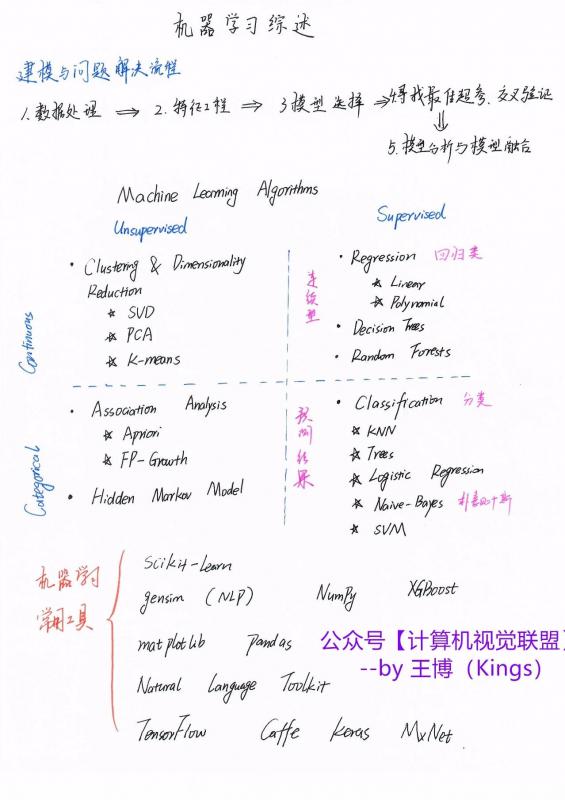 机器学习综述
建模与问题解决流程
1.数据处理 ⇒ 2.特征工程 ⇒ 3模型选择 ⇒ 4寻找最佳超参.交叉验证
⇓
5.模型分析与模型融合
Machine Learning Algorithms
Unsupervised
Supervised
Continuous
• Clustering & Dimensionality
Reduction
☆ SVD
☆ PCA
☆ K-means
连续型
• Regression 回归类
☆ Linear
☆ Polynomial
• Decision Trees
• Random Forests
Categorical
• Association Analysis
☆ Apriori
☆ FP-Growth
• Hidden Markov Model
预测结果
• Classification 分类
☆ KNN
☆ Trees
☆ Logistic Regression
☆ Naive-Bayes 朴素贝叶斯
☆ SVM
机器学习
常用工具
scikit-learn
gensim (NLP) NumPy XGBoost
matplotlib Pandas
Natural Language Toolkit
TensorFlow Caffe Keras MxNet
公众号【计算机视觉联盟】
--by 王博（Kings）